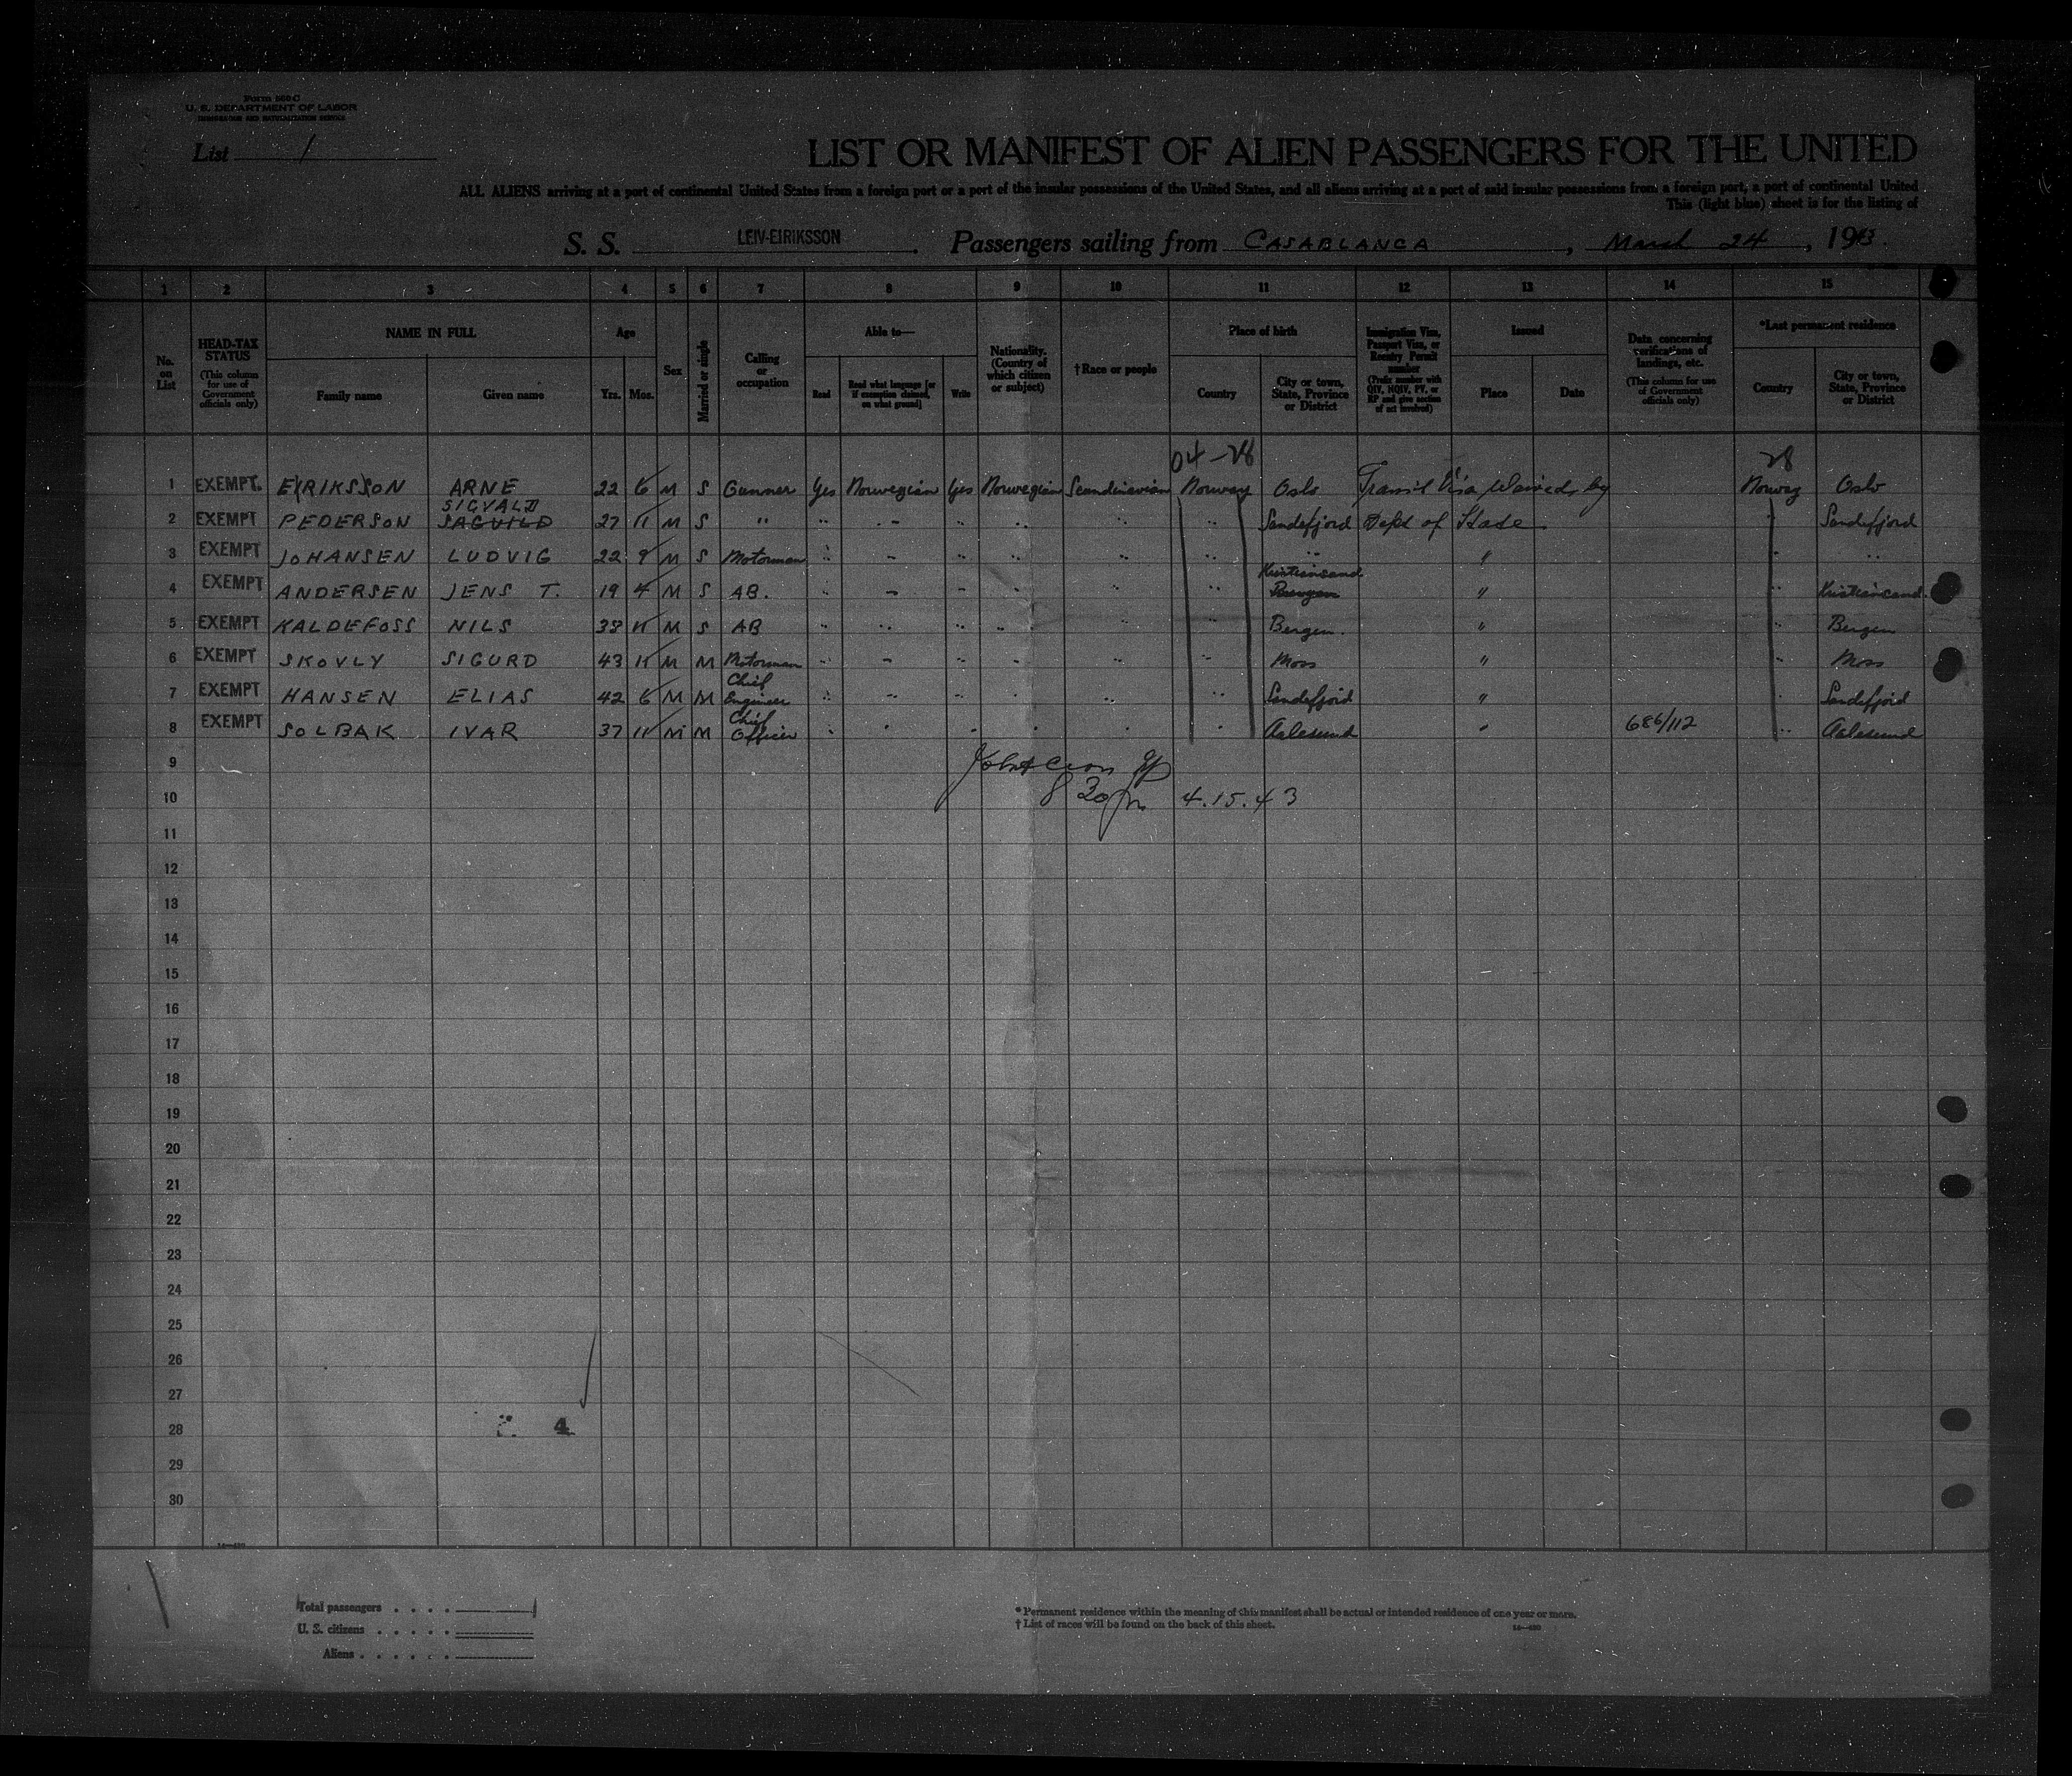 Form 500 C
U. S. DEPARTMENT OF LABOR
IMMIGRATION AND NATURALIZATION SERVICE
List 1
LIST OR MANIFEST OF ALIEN PASSENGERS FOR THE UNITED
ALL ALIENS arriving at a port of continental United States from a foreign port or a port of the insular possessions of the United States, and all aliens arriving at a port of said insular possessions from a foreign port, a port of continental United
This (light blue) sheet is for the listing of
S. S. LEIV-EIRIKSSON. Passengers sailing from CASABLANCA, March 24, 1943.
1 2 3 4 5 6 7 8 9 10 11 12 13 14 15
No. on List
HEAD-TAX STATUS (This column for use of Government officials only)
NAME IN FULL Family name Given name
Age Yrs. Mos.
Sex
Married or single
Calling or occupation
Able to— Read Read what language [or if exemption claimed, on what ground] Write
Nationality. (Country of which citizen or subject)
†Race or people
Place of birth Country City or town, State, Province or District
Immigration Visa, Passport Visa, or Reentry Permit number (Prefix number with QIV, NQIV, PV, or RP and give section of act involved)
Issued Place Date
Data concerning verifications of landings, etc. (This column for use of Government officials only)
*Last permanent residence Country City or town, State, Province or District
04-28 28
1 EXEMPT. EIRIKSSON ARNE 22 6 M S Gunner Yes Norwegian Yes Norwegian Scandinavian Norway Oslo Transit Visa Waived by Norway Oslo
SIGVALD
2 EXEMPT PEDERSON SAGUILD 27 11 M S " " " " " " " Sandefjord Dept of State " Sandefjord
3 EXEMPT JOHANSEN LUDVIG 22 9 M S Motorman " " " " " " " " " "
Kristiansand
4 EXEMPT ANDERSEN JENS T. 19 4 M S AB. " " " " " " Bergen " " Kristiansand
5 EXEMPT KALDEFOSS NILS 38 11 M S AB " " " " " " Bergen. " " Bergen
6 EXEMPT SKOVLY SIGURD 43 11 M M Motorman " " " " " " Moss " " Moss
7 EXEMPT HANSEN ELIAS 42 6 M M Chief Engineer " " " " " " Sandefjord " " Sandefjord
8 EXEMPT SOLBAK IVAR 37 11 M M Chief Officer " " " " " " Aalesund " 686/112 " Aalesund
9
10 8 30 pm 4.15.43
11
12
13
14
15
16
17
18
19
20
21
22
23
24
25
26
27
28 4
29
30
14—430
Total passengers
U. S. citizens
Aliens
* Permanent residence within the meaning of this manifest shall be actual or intended residence of one year or more.
† List of races will be found on the back of this sheet.
14—430